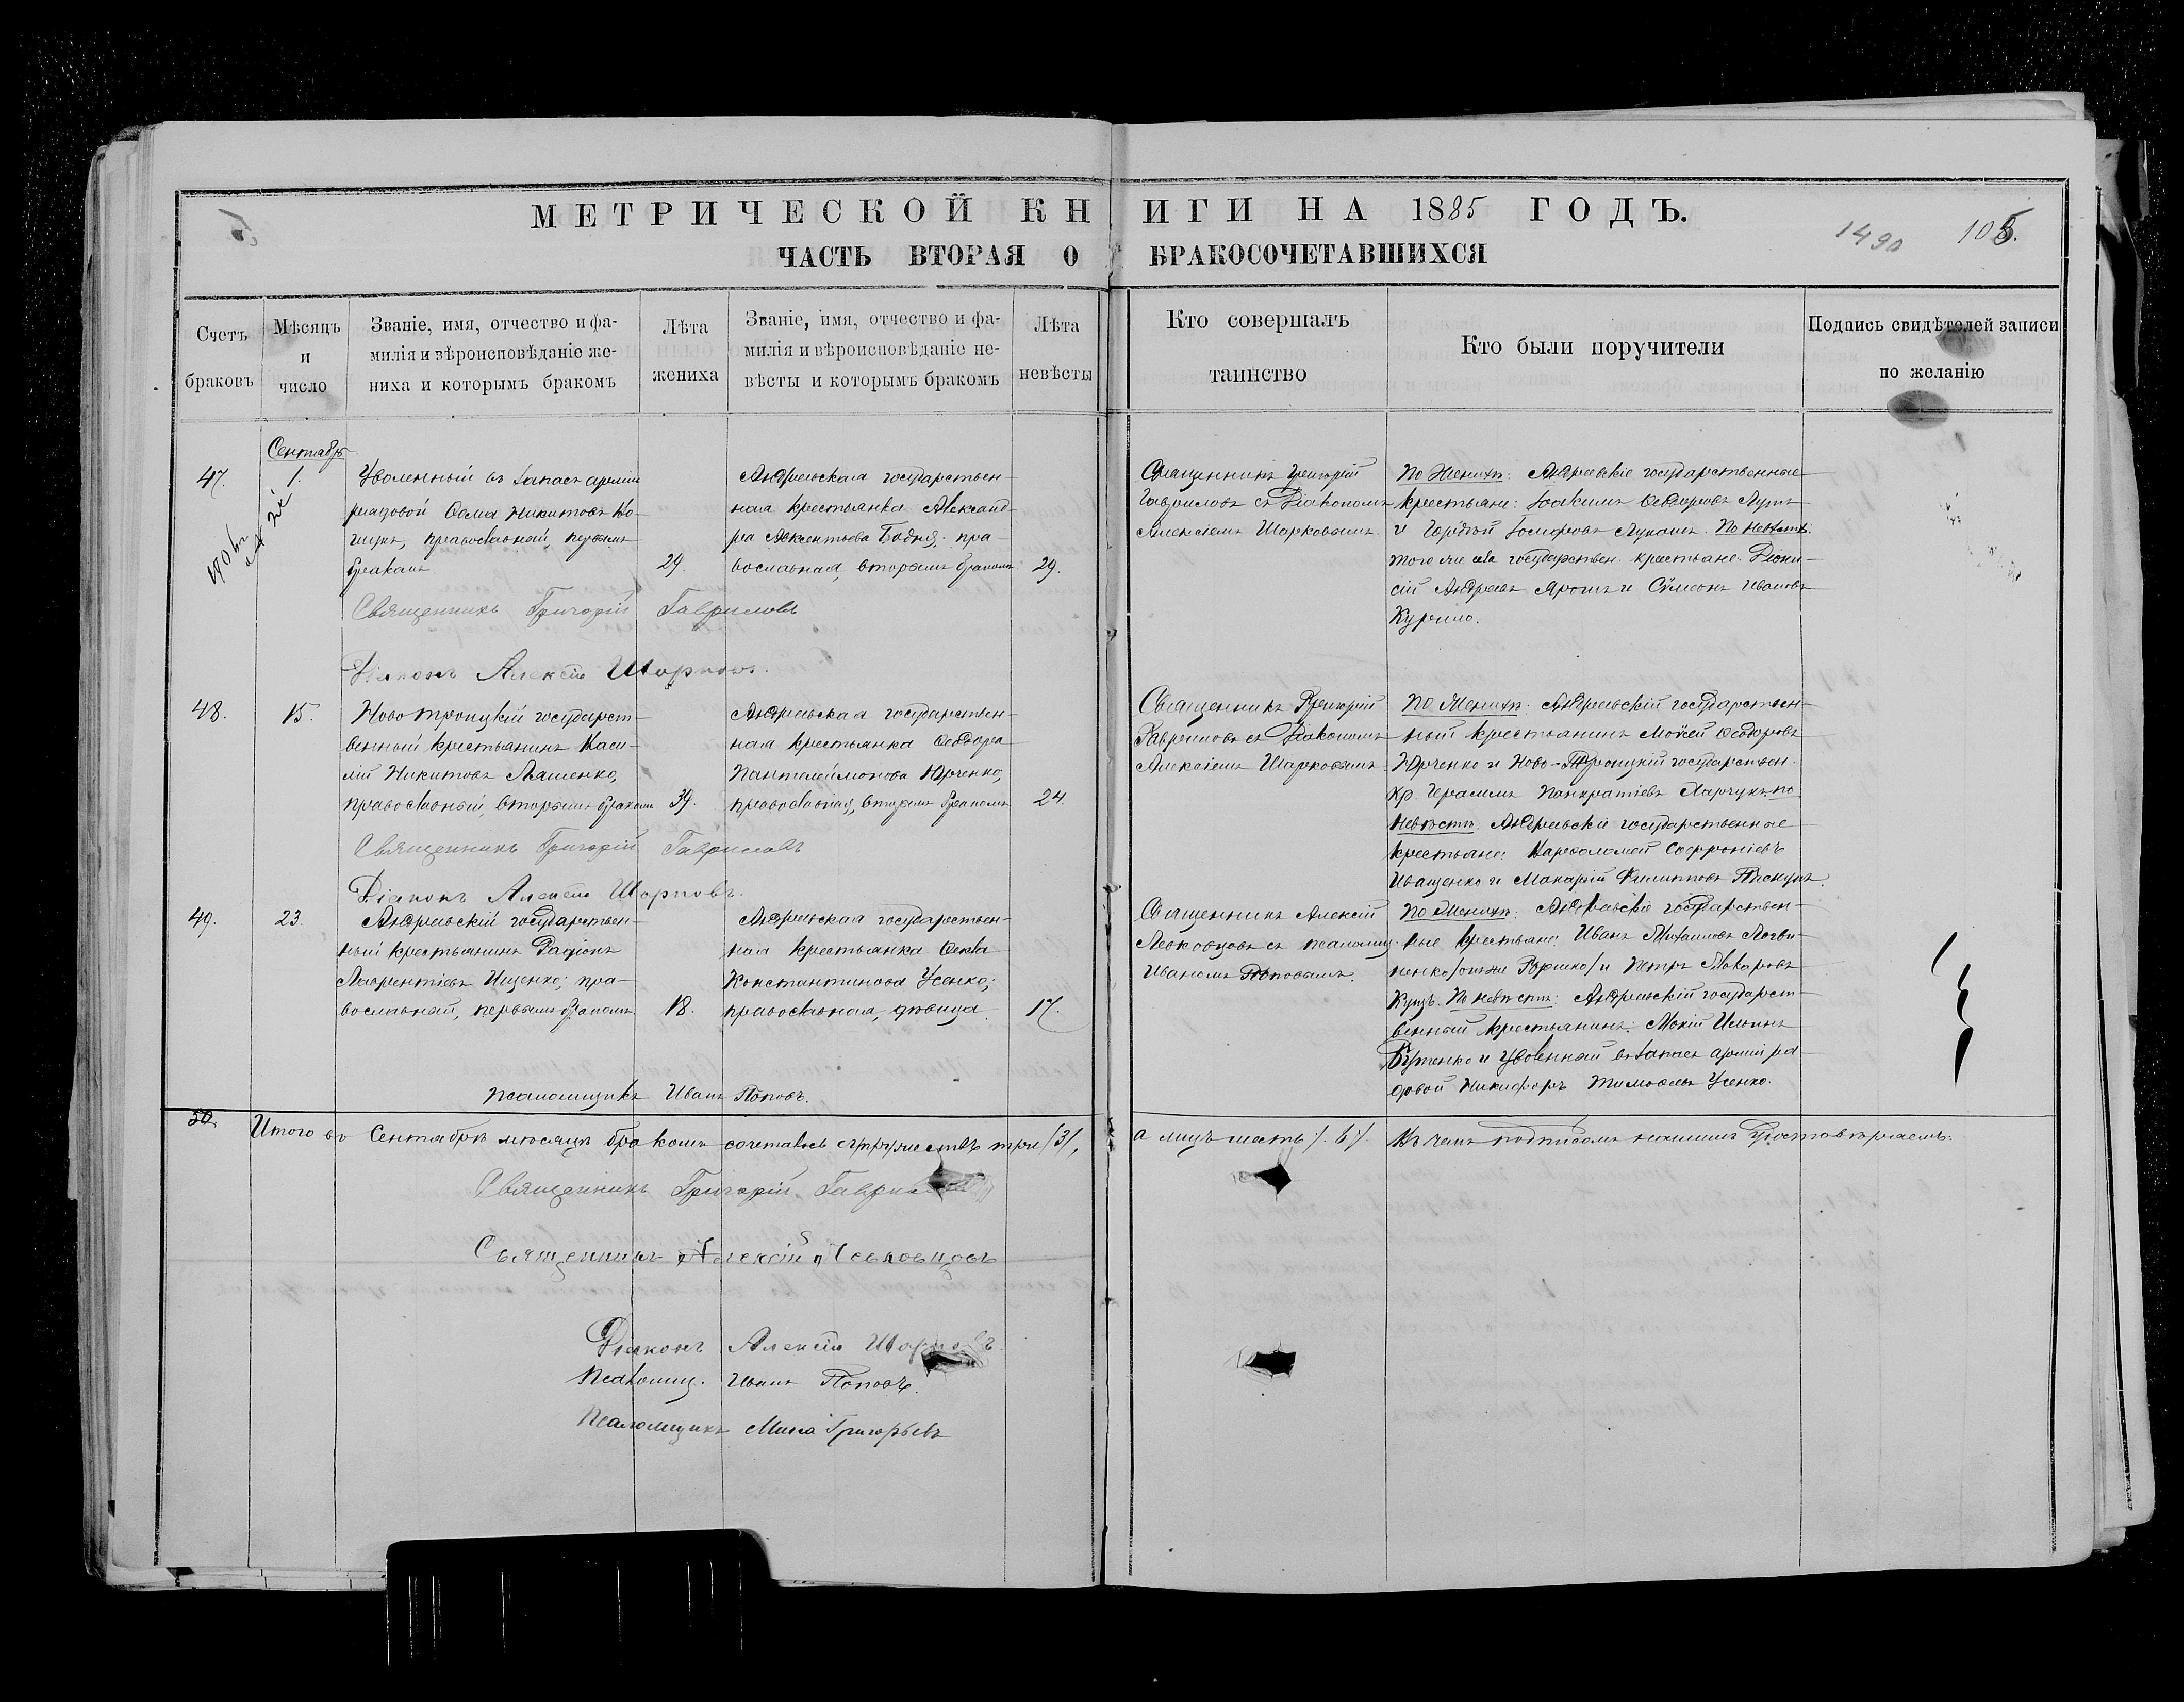 МЕТРИЧЕСКОЙ КНИГИ НА 1885 ГОДЪ.
1490 105.
ЧАСТЬ ВТОРАЯ О БРАКОСОЧЕТАВШИХСЯ
Счетъ браковъ
Мѣсяцъ и число
Званіе, имя, отчество и фа-
милія и вѣроисповѣданіе же-
ниха и которымъ бракомъ
Лѣта жениха
Званіе, имя, отчество и фа-
милія и вѣроисповѣданіе не-
вѣсты и которымъ бракомъ
Лѣта невѣсты
Кто совершалъ таинство
Кто были поручители
Подпись свидѣтелей записи по желанію
Сентябрь
47. 1.
Уволенный въ запасъ арміи
рядовой Ѳома Никитовъ
православный, первымъ
бракомъ 29.
Андреевская государствен-
ная крестьянка Александ-
ра Авксентьева Бодня; пра-
вославная, вторымъ бракомъ 29.
Священникъ Григорій
Гавриловъ съ Діакономъ
Алексіемъ Шарковымъ.
По Женихѣ: Андреевскіе государственные
крестьяне: Іоакимъ Ѳеодоровъ
и Іосифовъ По Невѣстѣ:
того же села государствен. крестьяне: Діони-
сій Андреевъ Ярошъ и Сѵмеонъ Ивановъ
Курило.
Священникъ Григорій Гавриловъ
Діаконъ Алексій Шарковъ.
48. 15.
Новотроицкій государст-
венный крестьянинъ Васи-
лій Никитовъ Ляшенко,
православный, вторымъ бракомъ 39.
Андреевская государствен-
ная крестьянка Ѳеодора
Пантелеймонова Юрченко,
православная, вторымъ бракомъ 24.
Священникъ Григорій
Гавриловъ съ Діакономъ
Алексіемъ Шарковымъ.
По Женихѣ: Андреевскій государствен-
ный крестьянинъ Моѵсей Ѳеодоровъ
Юрченко и Ново-Троицкій государствен.
кр. Герасимъ Панкратіевъ по
Невѣстѣ: Андреевскіе государственные
крестьяне: Варѳоломей Софроніевъ
Иващенко и Макарій Филипповъ
Священникъ Григорій Гавриловъ
Діаконъ Алексій Шарковъ.
49. 23.
Андреевскій государствен-
ный крестьянинъ Родіонъ
Лаврентіевъ Ищенко; пра-
вославный, первымъ бракомъ 18.
Андреевская государствен-
ная крестьянка Ѳекла
Константинова Усенко;
православная, дѣвица 17.
Священникъ Алексій
Левковцовъ съ псаломщ.
Иваномъ Поповымъ.
По Женихѣ: Андреевскіе государствен-
ные крестьяне: Иванъ Михаиловъ Логви-
ненко и Петръ Макаровъ
Куцъ. По невѣстѣ: Андреевскій государст-
венный крестьянинъ: Мокій Ильинъ
Бутенко и уволенный въ запасъ арміи ря-
довой Никифоръ Тимоѳеевъ Усенко.
Псаломщикъ Иванъ Поповъ.
50.
Итого въ Сентябрѣ мѣсяцѣ бракомъ сочеталось супружествъ три /3/, а лицъ шесть /. 6 /. Въ чемъ подписомъ нашимъ удостовѣряемъ:
Священникъ Григорій Гавриловъ
Священникъ Алексій Левковцовъ
Діаконъ Алексій Шарковъ
Псаломщ. Иванъ Поповъ.
Псаломщикъ Мина Григорьевъ